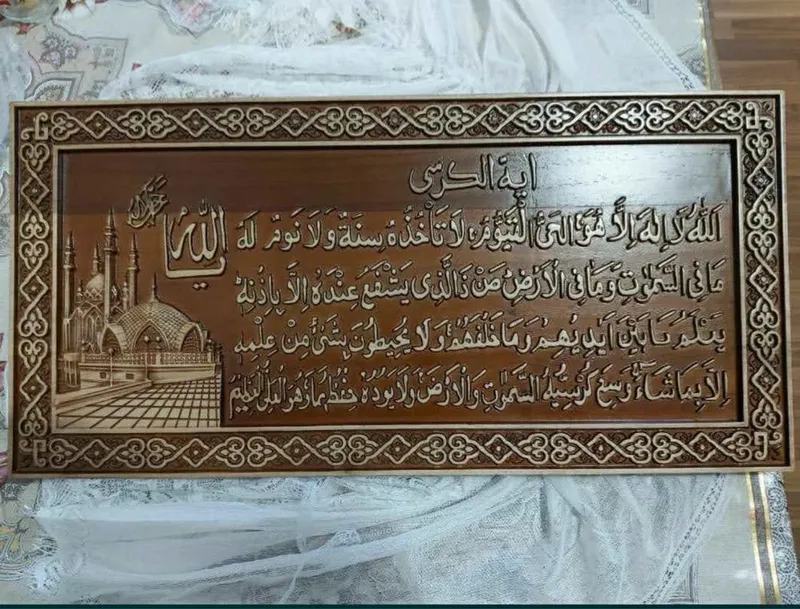 آية الكرسى
اللّٰهُ لَا إِلٰهَ إِلَّا هُوَ الْحَىُّ الْقَيُّوْمُ، لَا تَأْخُذُهُ سِنَةٌ وَلَا نَوْمٌ لَهُ
مَا فِى السَّمٰوٰتِ وَمَا فِى الْاَرْضِ مَنْ ذَا الَّذِى يَشْفَعُ عِنْدَهُ اِلَّا بِاِذْنِهٖ
يَعْلَمُ مَا بَيْنَ اَيْدِيهِمْ وَمَا خَلْفَهُمْ وَلَا يُحِيطُونَ بِشَىْءٍ مِنْ عِلْمِهٖ
اِلَّا بِمَا شَاءَ وَسِعَ كُرْسِيُّهُ السَّمٰوٰتِ وَالْاَرْضَ وَلَا يَؤُدُهُ حِفْظُهُمَا وَهُوَ الْعَلِىُّ الْعَظِيْمُ
يا اللّٰه